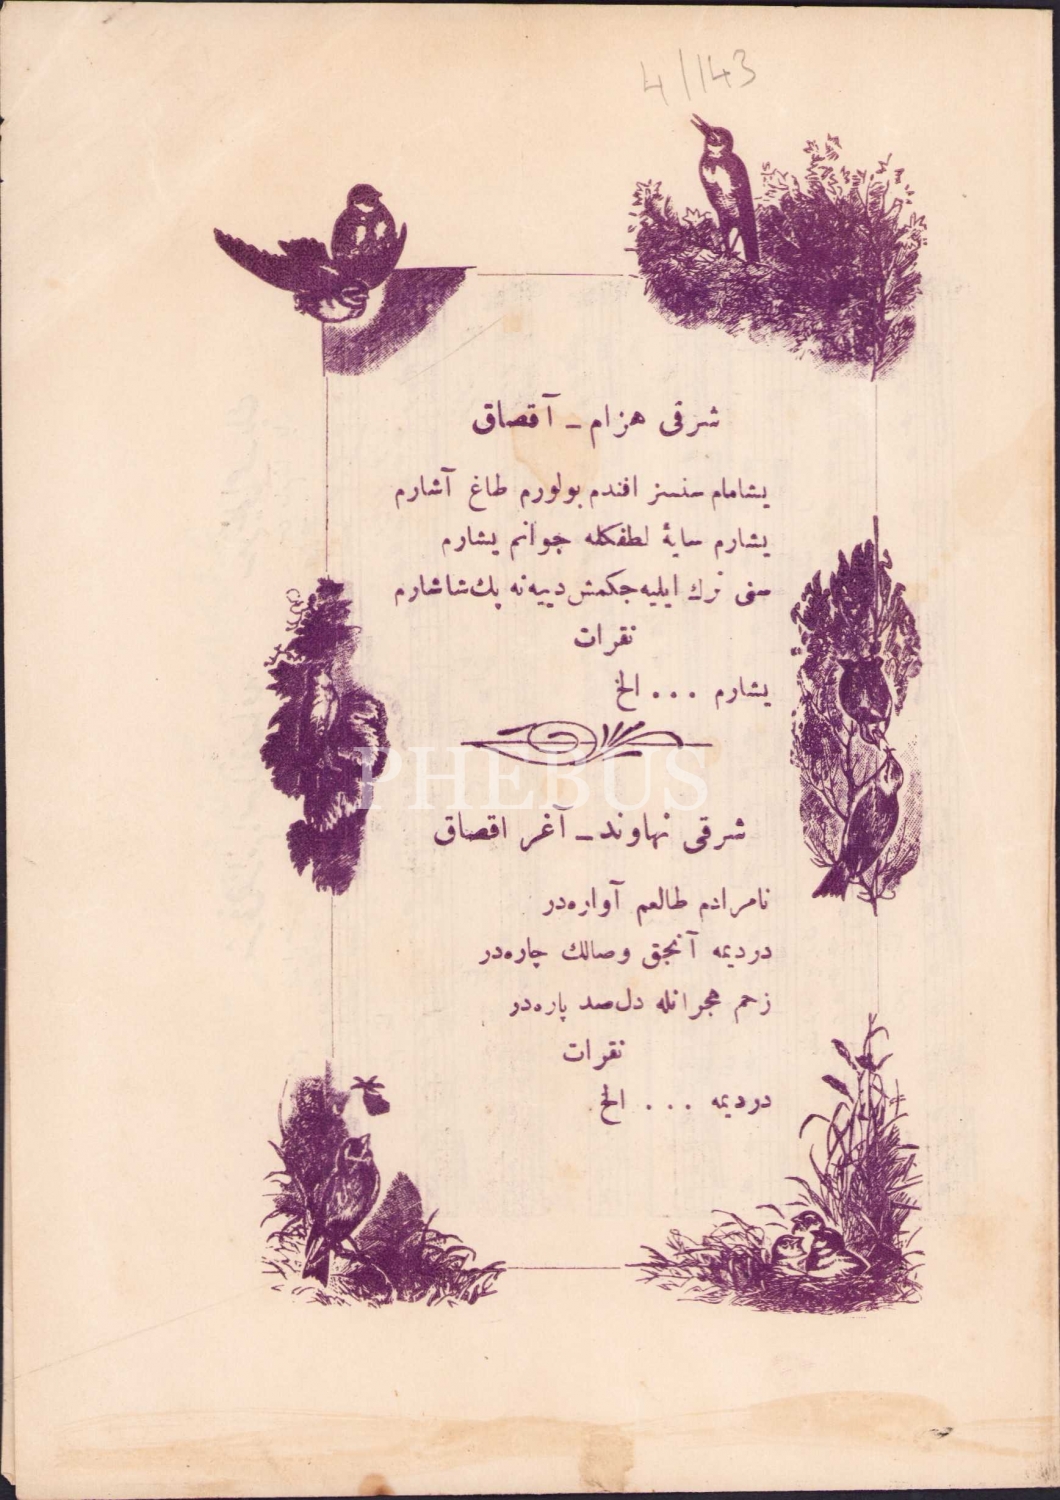 4/143
شرقی هزام ـ آقصاق
یشامام سنسز افندم بولورم طاغ آشارم
یشارم سایهٔ لطفکله جوانم یشارم
سنی ترك ایلیه‌جکمش دییه‌نه پك شاشارم
نقرات
یشارم ... الخ
PHEBUS
شرقی نهاوند ـ آغر اقصاق
نامرادم طالعم آواره‌در
دردیمه آنجق وصالك چاره‌در
زخم هجرانله دل صد پاره‌در
نقرات
دردیمه ... الخ